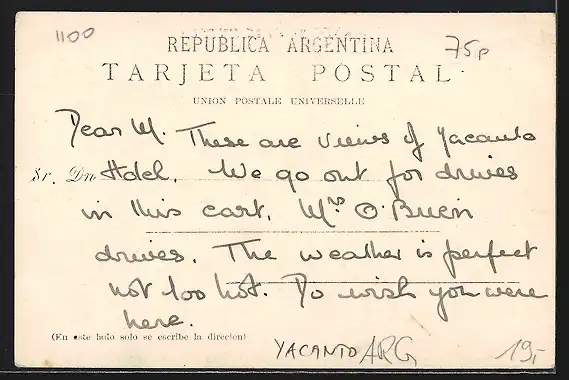 1100
REPUBLICA ARGENTINA
75p
TARJETA POSTAL
UNION POSTALE UNIVERSELLE
Dear M. These are views of Yacanto
Sr. Dn Hotel. We go out for drives
in this cart, Mrs O'Brien
drives. The weather is perfect
not too hot. Do wish you were
here.
(En este lado solo se escribe la direcion)
YACANTO ARG
19,-